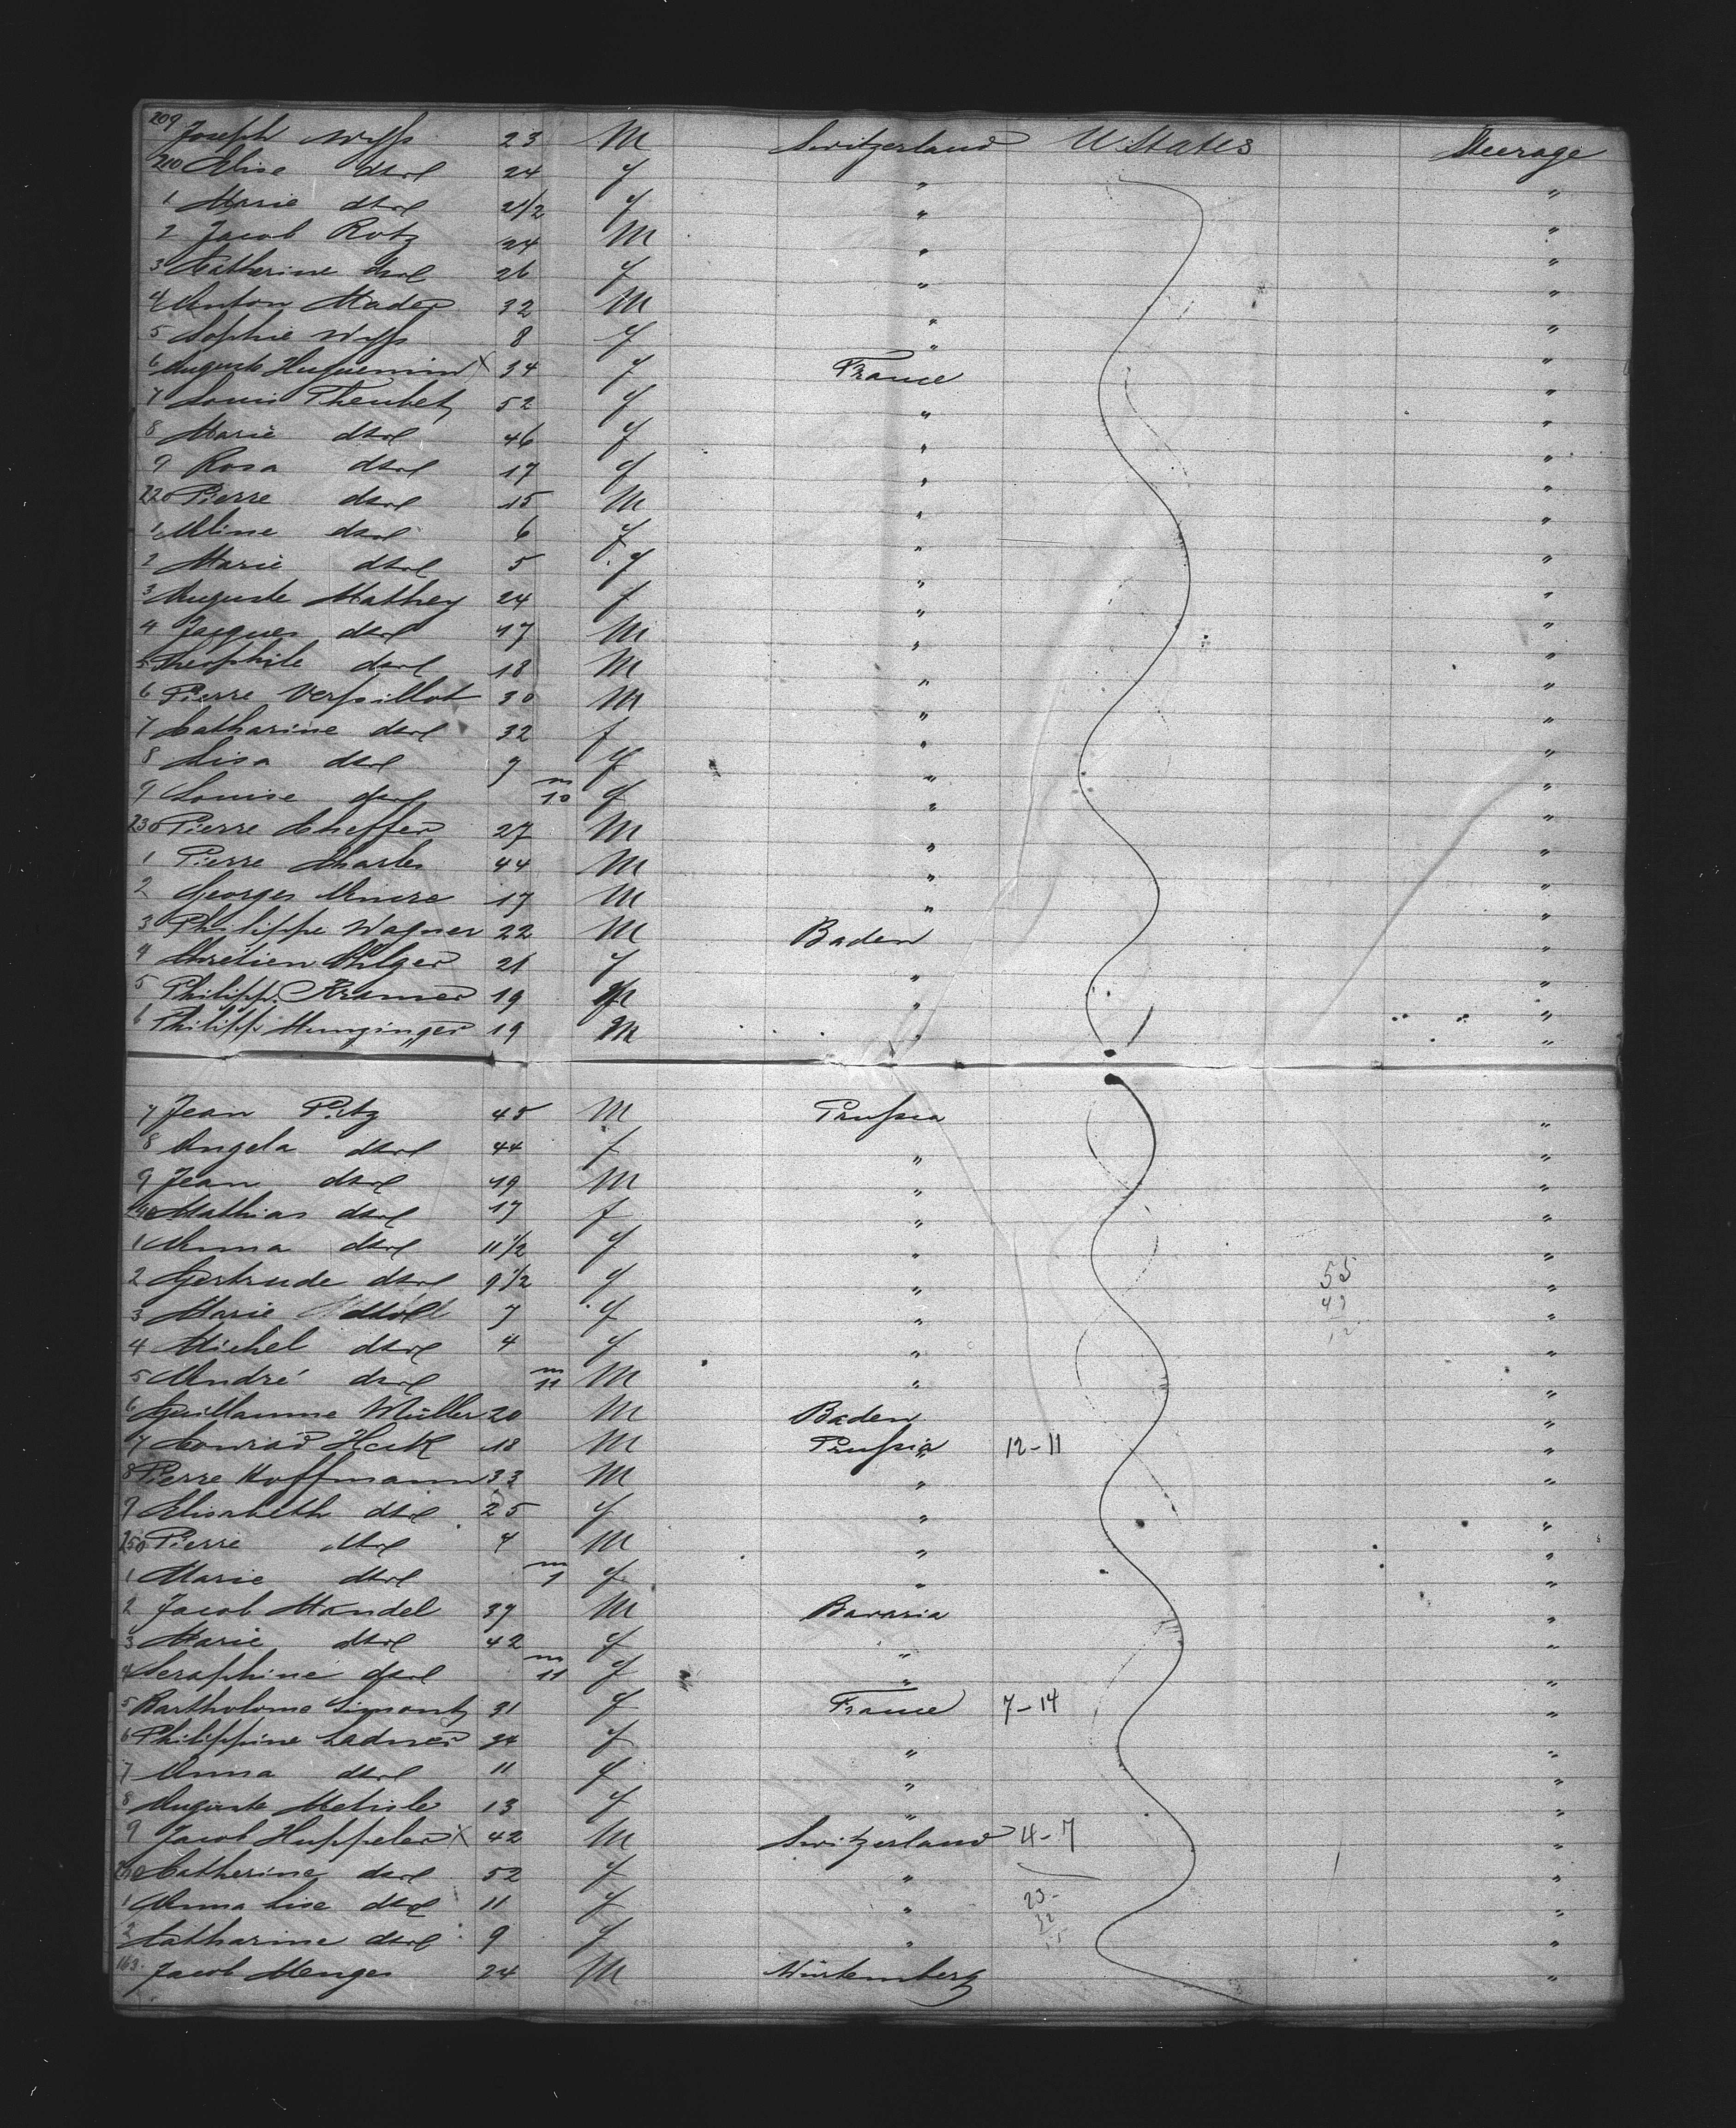 209 Joseph Wyss 23 M Switzerland U States Steerage
210 Elise dsrl 24 f " "
1 Marie dsrl 2 1/2 f " "
2 Jacob Rotz 24 M " "
3 Catherine dsrl 26 f " "
4 Anton Mader 32 M " "
5 Sophie Wyss 8 f " "
6 Auguste Huguemin X 34 f France "
7 Louis Theubet 52 f " "
8 Marie dsrl 46 f " "
9 Rosa dsrl 17 f " "
220 Pierre dsrl 15 M " "
1 Aline dsrl 6 f " "
2 Marie dsrl 5 f " "
3 Auguste Mathey 24 f " "
4 Jacques dsrl 17 M " "
5 Theophile dsrl 18 M " "
6 Pierre Verpillot 30 M " "
7 Catharine dsrl 32 f " "
8 Lisa dsrl 9 f " "
9 Louise dsrl m 10 f " "
230 Pierre Cheffer 27 M " "
1 Pierre Charles 44 M " "
2 Georges 17 M " "
3 Philippe Wagner 22 M Baden "
4 Chretien Hilger 21 f " "
5 Philipp. Kramer 19 M " "
6 Philipp. Munzinger 19 M " "
7 Jean Pitz 45 M Prussia "
8 Angela dsrl 44 f " "
9 Jean dsrl 19 M " "
240 Mathias dsrl 17 f " "
1 Anna dsrl 11 1/2 f " "
2 Gertrude dsrl 9 1/2 f " 55 "
3 Marie dsrl 7 f " 49 "
4 Michel dsrl 4 f " 12 "
5 André dsrl m 11 M " "
6 Guillaume Müller 20 M Baden "
7 Conrad Heck 18 M Prussia 12-11 "
8 Pierre Hoffmann 33 M " "
9 Elisabeth dsrl 25 f " "
250 Pierre dsrl 4 M " "
1 Marie dsrl m 1 f " "
2 Jacob Mandel 37 M Bavaria "
3 Marie dsrl 42 f " "
4 Seraphine dsrl m 11 f " "
5 Bartholome Simontz 31 f France 7-14 "
6 Philippine Ladner 34 f " "
7 Anna dsrl 11 f " "
8 Auguste 13 f " "
9 Jacob Huppeler X 42 M Switzerland 4-7 "
260 Catherine dsrl 52 f " "
1 Anna Lise dsrl 11 f " 23- "
2 Catharine dsrl 9 f " 32 "
163. Jacob Menges 24 M Würtemberg "